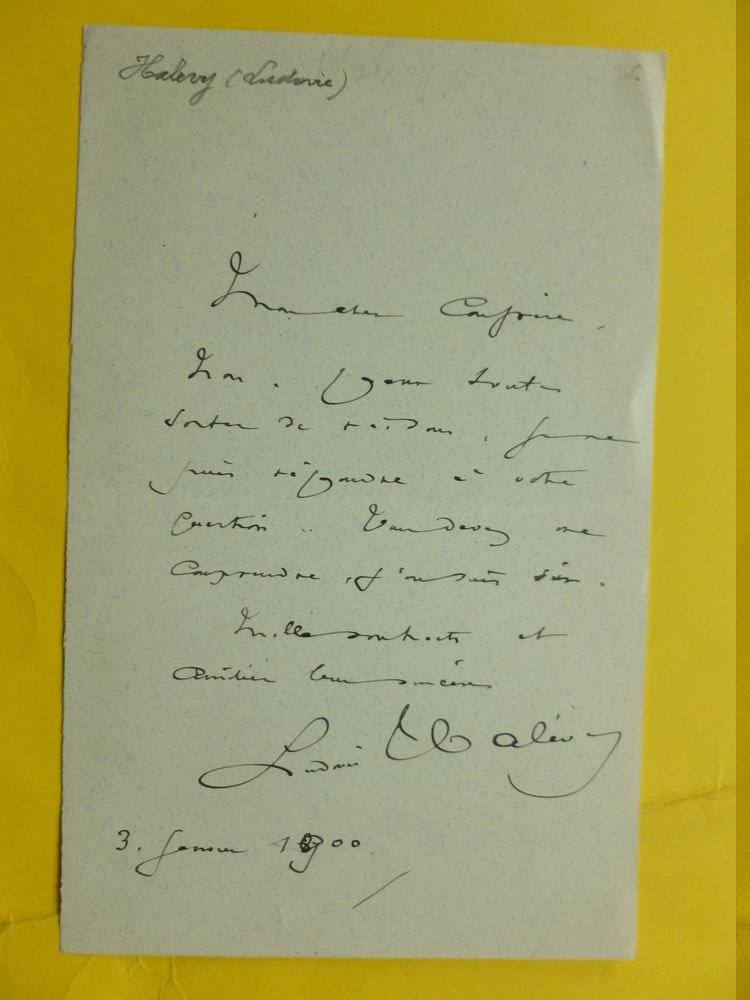 Halévy (Ludovic)
Mon cher Confrère,
Non. Pour toutes
sortes de raisons, je ne
puis répondre à votre
question.. Vous devez me
comprendre, j'en suis sûr.
Mille souhaits et
amitiés bien sincères
Ludovic Halévy
3. Janvier 1900